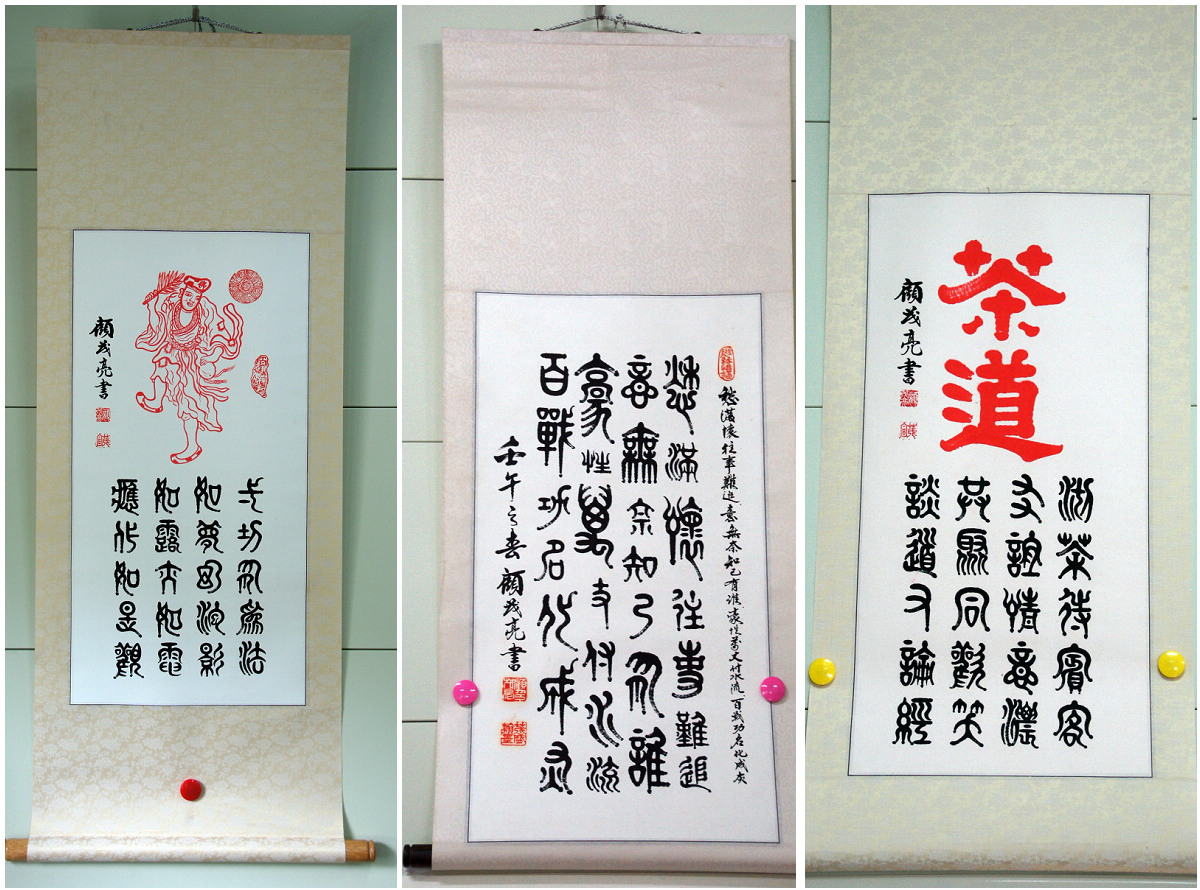 弌切有爲法
如夢幻泡影
如露亦如電
應作如是觀
顧茂亮書
愁滿懷往事難追意無奈知己有誰豪性萬丈付水流百戰功名化成灰
愁滿懷往事難追
意無奈知己有誰
豪性萬丈付水流
百戰功名化成灰
壬午之春顧茂亮書
茶道
沏茶待賓客
友誼情意濃
共聚同歡笑
談道又論經
顧茂亮書